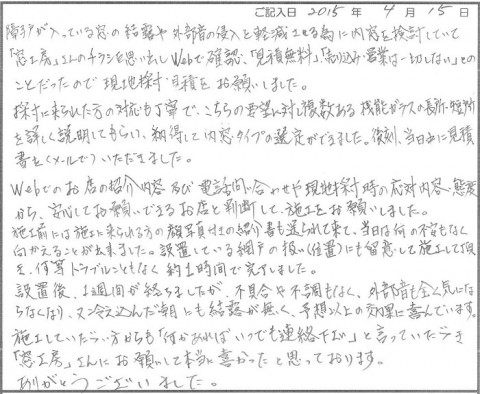 ご記入日 2015年 4月 15日
障子が入っている窓の結露や外部音の侵入を軽減させる為に内窓を検討していて
「窓工房」さんのチラシを思い出しWebで確認、「見積無料」、「売り込み・営業は一切しない」との
ことだったので現地採寸・見積をお願いしました。
採寸に来られた方の対応も丁寧で、こちらの要望に対し複数ある機能ガラスの長所・短所
を詳しく説明してもらい、納得して内窓タイプの選定ができました。後刻、当日中に見積
書を(メールで)いただきました。
Webでのお店の紹介内容及び電話問い合わせや現地採寸時の応対内容、態度
から、安心してお願いできるお店と判断して、施工をお願いしました。
施工前には施工に来られる方の顔写真付の紹介書も送られて来て、当日は何の不安もなく
向かえることが出来ました。設置している網戸の扱い(位置)にも留意して施工して頂
き、何等トラブルこともなく約1時間で完了しました。
設置後、1週間が経ちましたが、不具合や不調もなく、外部音も全く気にな
らなくなり、又冷え込んだ朝にも結露が無く、予想以上の効果に喜んでいます。
施工していただいた方からも「何かあればいつでも連絡下さい」と言っていただき
「窓工房」さんにお願いして本当に良かったと思っております。
ありがとうございました。